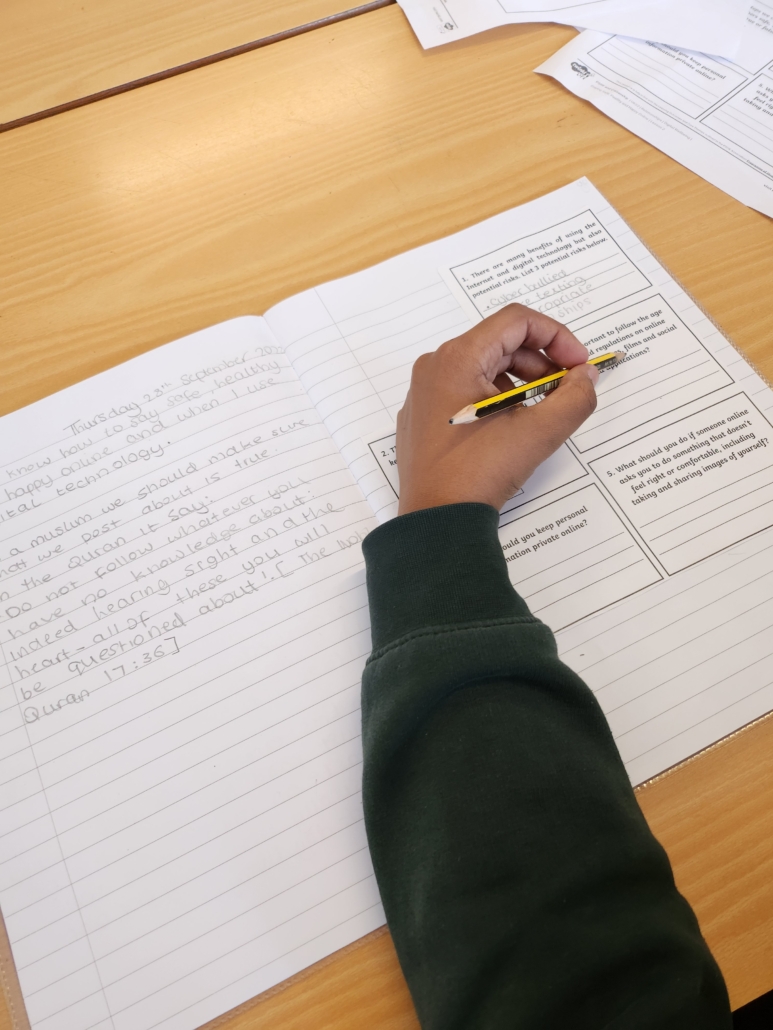 Thursday 28th September
know how to say safe, healthy
happy online and when I use
ital technology.
a muslim we should make sure
hat we post about is true.
n the Quran it say:
Do not follow whatever you
have no knowledge about.
Indeed hearing, sight and the
heart - all of these you will
be questioned about!. [ The Hol
Quran 17:36]
1. There are many benefits of using the
Internet and digital technology but also
potential risks. List 3 potential risks below.
. cyber bullied
texting
ropriate
ships
2. T
ke
ortant to follow the age
d regulations on online
films and social
applications?
ould you keep personal
mation private online?
5. What should you do if someone online
asks you to do something that doesn't
feel right or comfortable, including
taking and sharing images of yourself?
you keep personal
information private online?
5. W
asks
feel ri
taking and